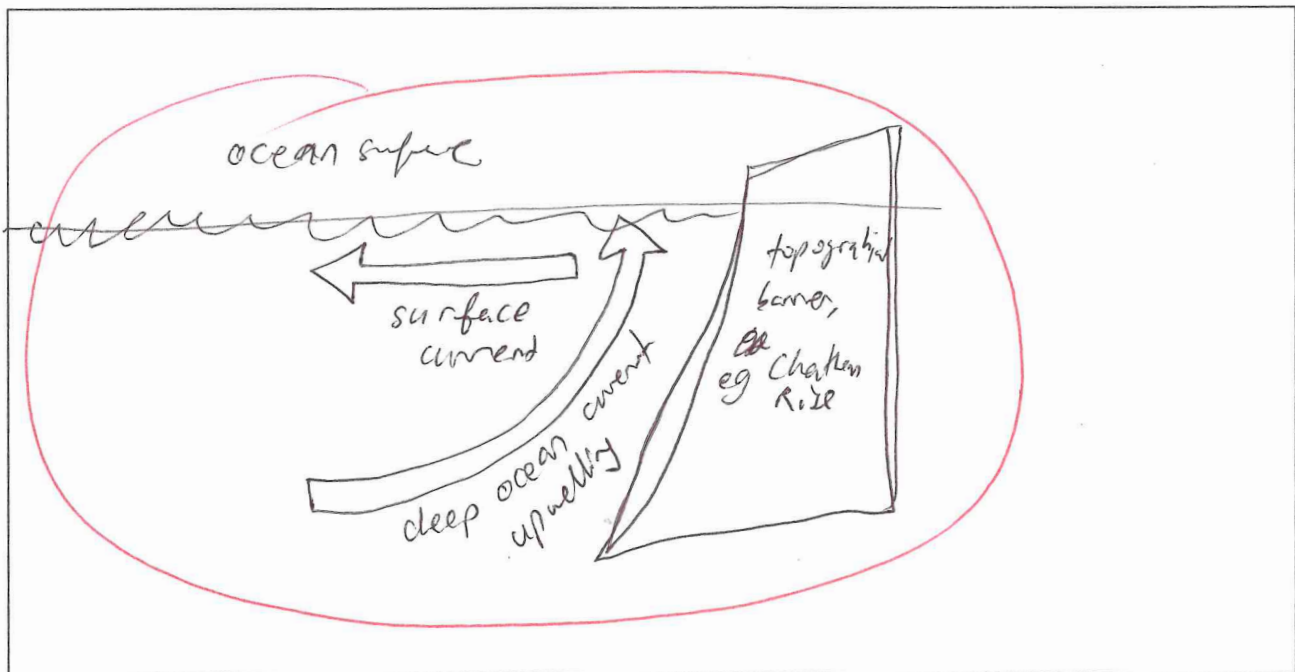 ocean surface
surface
current
deep ocean current
upwelling
topographical
barrier,
eg Chatham
Rise